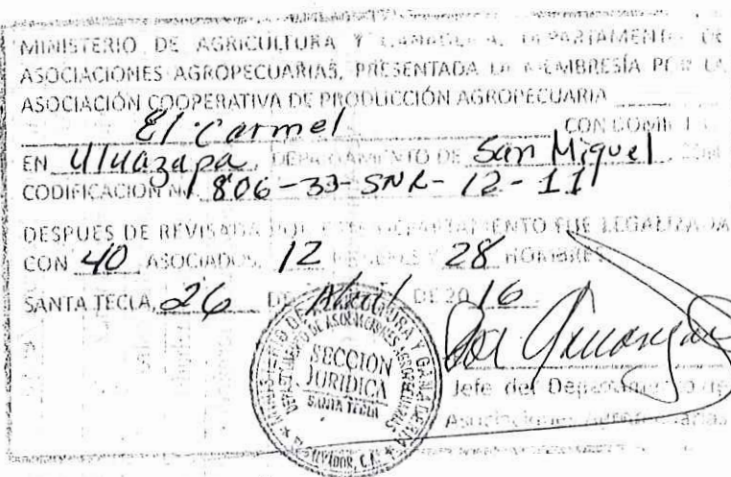 MINISTERIO DE AGRICULTURA Y GANADERIA, DEPARTAMENTO DE
ASOCIACIONES AGROPECUARIAS, PRESENTADA LA MEMBRESÍA POR LA
ASOCIACIÓN COOPERATIVA DE PRODUCCIÓN AGROPECUARIA
El Carmel CON DOMICILIO
EN Uluazapa, DEPARTAMENTO DE San Miguel, CON
CODIFICACION No. 806-33-SNR-12-11
DESPUES DE REVISADA POR ESTE DEPARTAMENTO FUE LEGALIZADA
CON 40 ASOCIADOS, 12 MUJERES Y 28 HOMBRES.
SANTA TECLA, 26 DE Abril DE 2016.
MINISTERIO DE AGRICULTURA Y GANADERIA
DEPARTAMENTO DE ASOCIACIONES AGROPECUARIAS
SECCION
JURIDICA
SANTA TECLA
SALVADOR, C.A.
Jefe del Departamento de
Asociaciones Agropecuarias